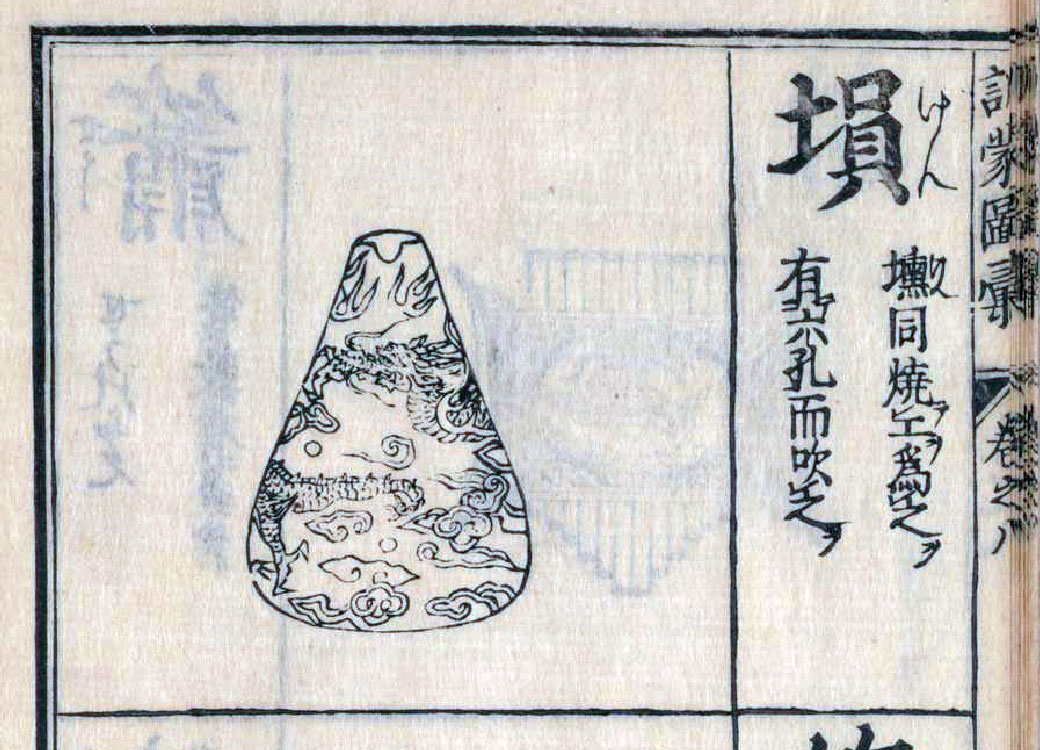 訓蒙圖彙 卷之八
塤
けん
壎同燒土爲之ヲ
有六孔而吹之ヲ